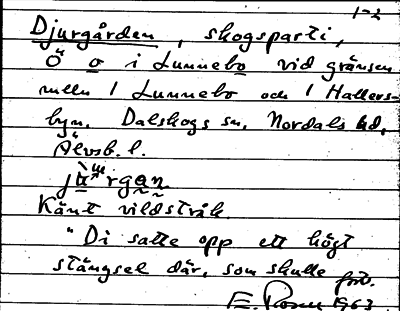 1-2
Djurgården, skogsparti,
Ö o i Lunnebo vid gränsen
mellu 1 Lunnebo och 1 Hallers-
byn. Dalskogs sn, Nordals hd,
Älvsb. l.
Känt vildstråk.
"Di satte opp ett högt
stängsel där, som skulle
E. Rosell 1963